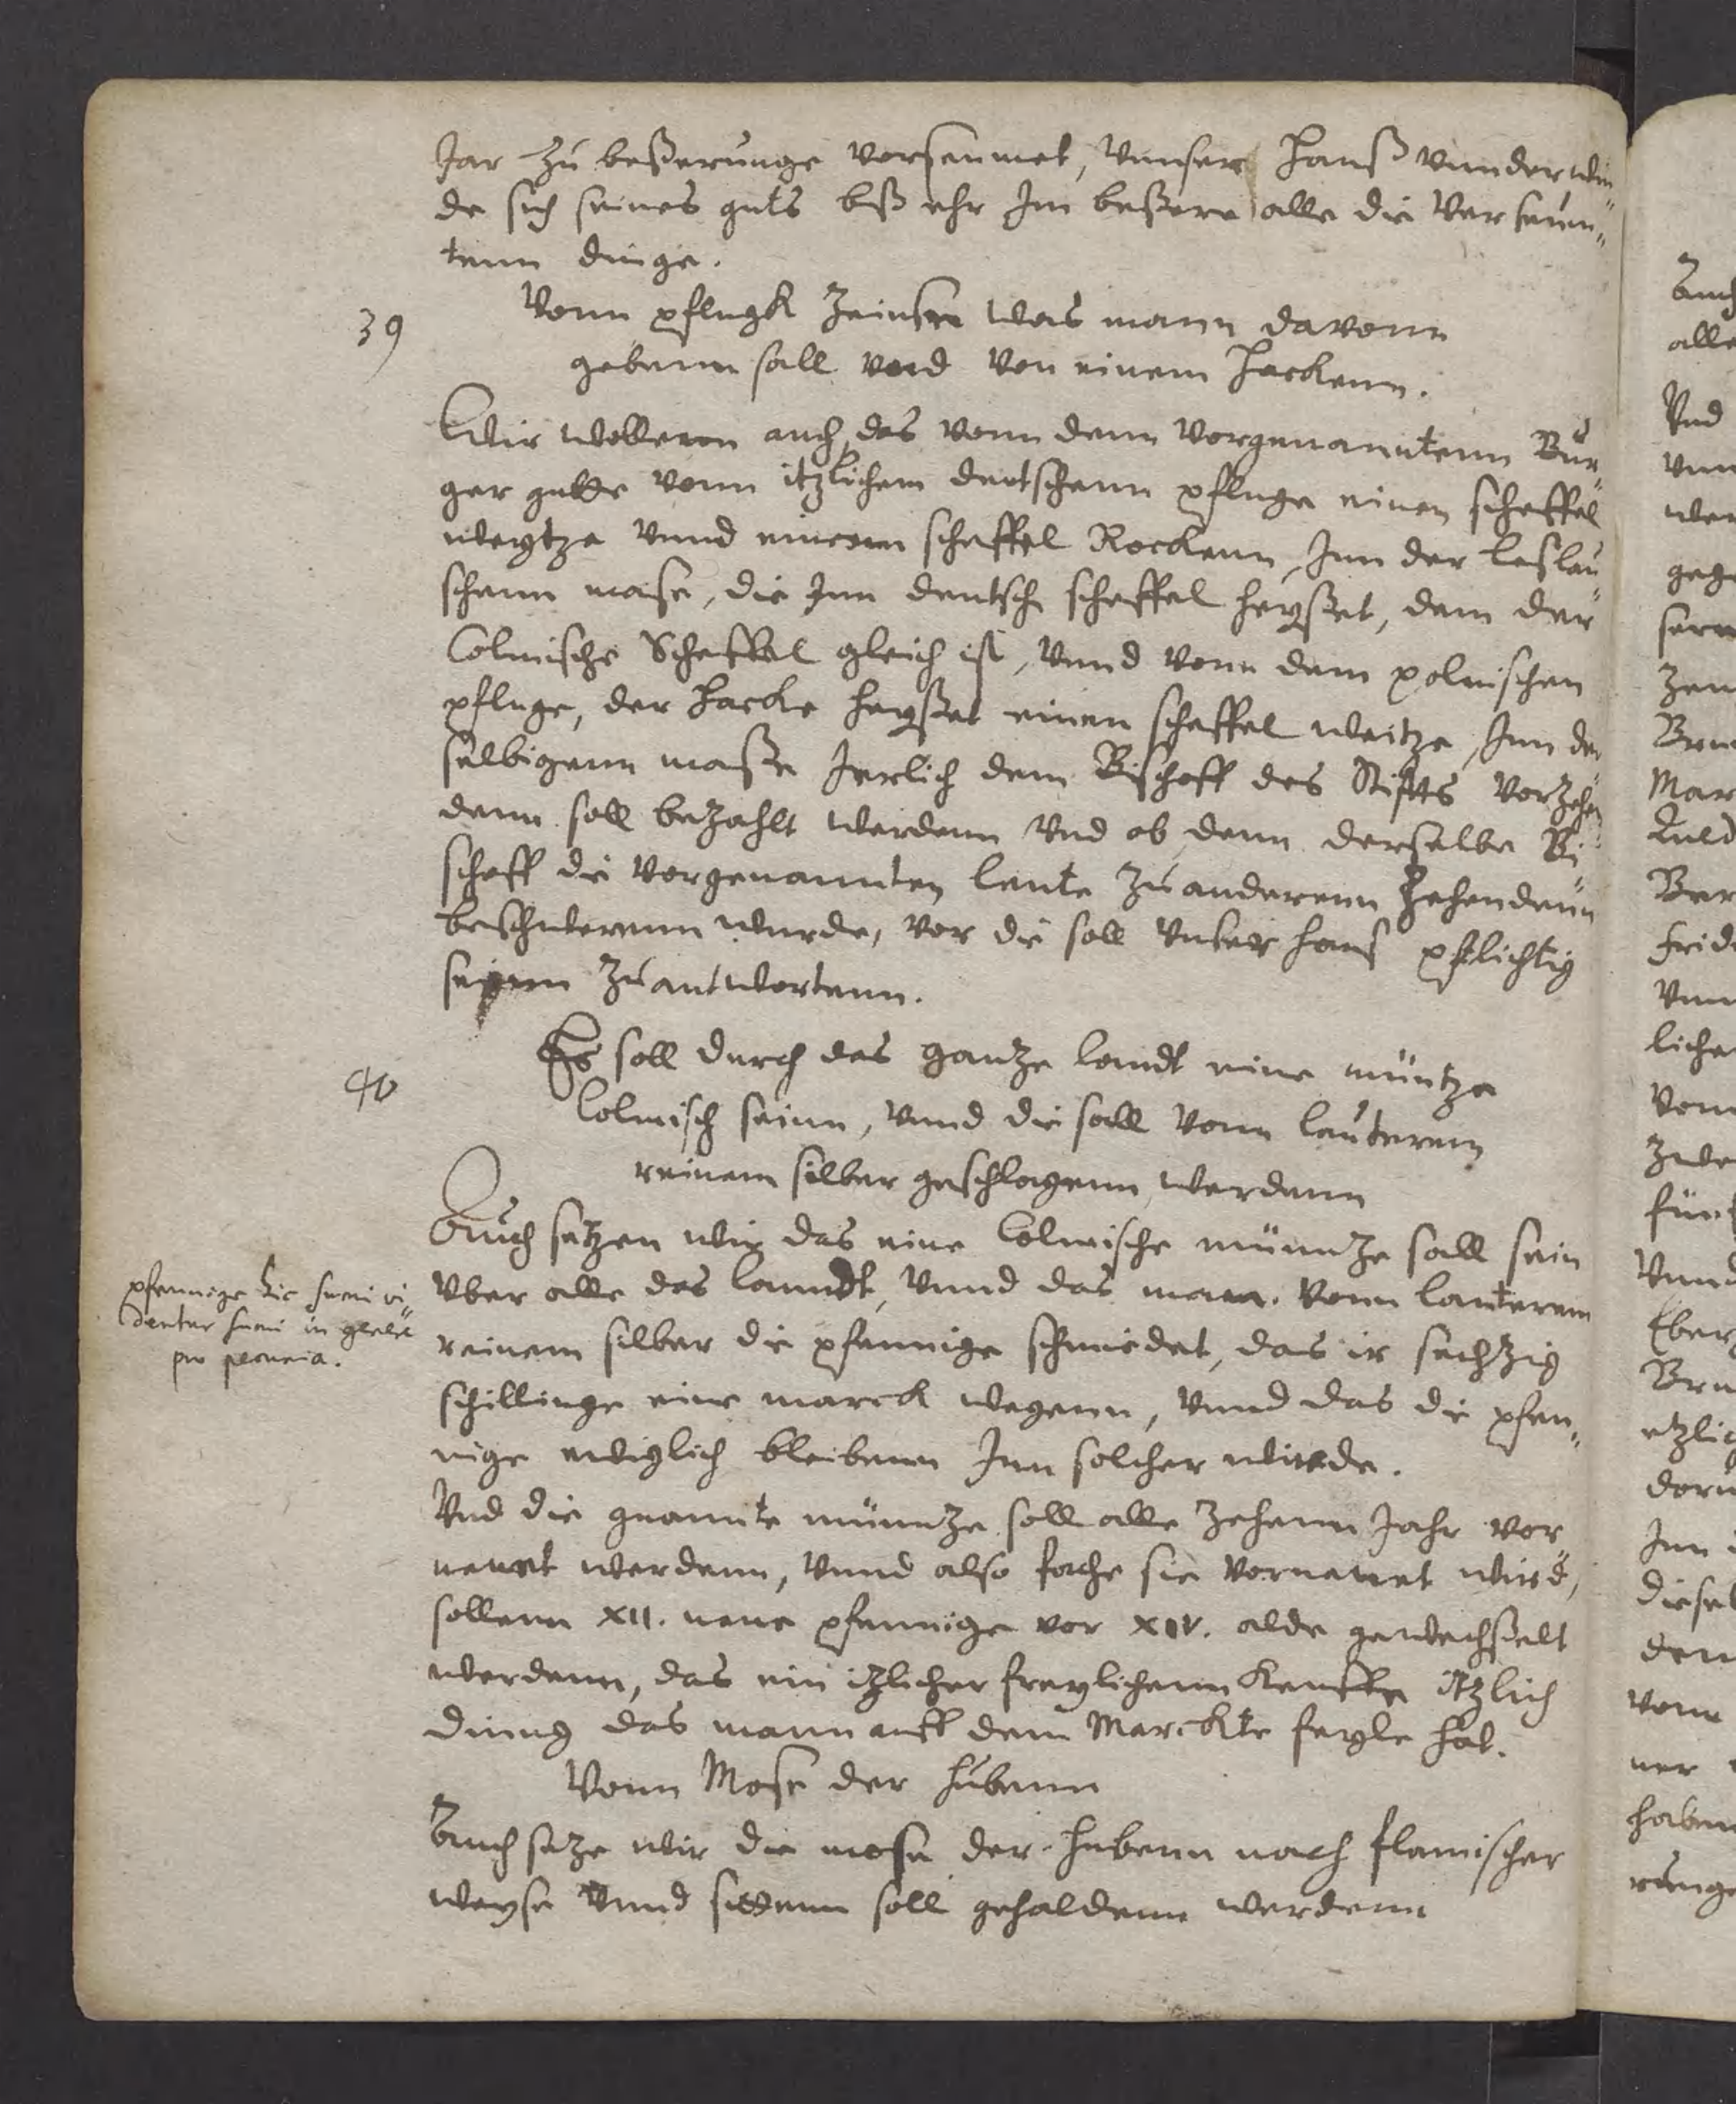 Jar zu beßerunge vorseumet, vunser Hauß vunderwin„
de sich seines guts biß ehr Im beßere alle die verseum„
tenn dinge.
39
Vonn pflugk Zeinsen was mann davonn
gebenn sall vnd von einem Hackenn.
Wir wollenn auch, das vonn denn vorgenanntenn Bur„
ger gutte vonn itzlichem deutschenn pfluge einen scheffel
weytze vnnd einenn scheffel Rockenn, Inn der leslau„
schenn mase, die Inn deutsch scheffel heyßet, dem der
Colmische Scheffel gleich ist, vnnd vonn dem polnischen
pfluge, der Hacke heyßet einen scheffel weitze, Inn der
selbigenn maße Jerlich dem Bischoff des Stiffts vor Zehen„
denn soll bezahlt werdenn vnd ob denn derselbe Bi„
schoff die vorgenannten leute zu anderenn Zehendenn
beschwerenn wurde, vor die soll vnser haus pflichtig
seynn zu antwortenn.
40
Es soll durch das gantze landt eine müntze
Colmisch seinn, vnnd die soll vonn lauterem
reinem silber geschlagenn werdenn
Auch setzen wir das eine Colmische münntze sall sein
vber alle das lanndt, vnnd das mann vonn lauterem
reinem silber die pfennige schmiedet, das ir sechtzig
schillinge eine marck wegenn, vnnd das die pfen„
nige ewiglich bleibenn Inn solcher wirde.
pfennige hic sumi vi„
dentur
pro pecunia.
Vnd die gnannte münntze soll alle zehenn Jahr vor„
neuet werdenn, vnnd also fache sie vorneuet wird,
sollenn XII. neue pfennige vor XIV. alde gewechßelt
werdenn, das ein itzlicher freylichenn keuffe itzlich
dinng das mann auff dem Marckte feyle hat.
Vonn Mose der hubenn
Auch setze wir die mose der hubenn nach flamischer
weyse vnnd sittenn soll gehaldenn werdenn